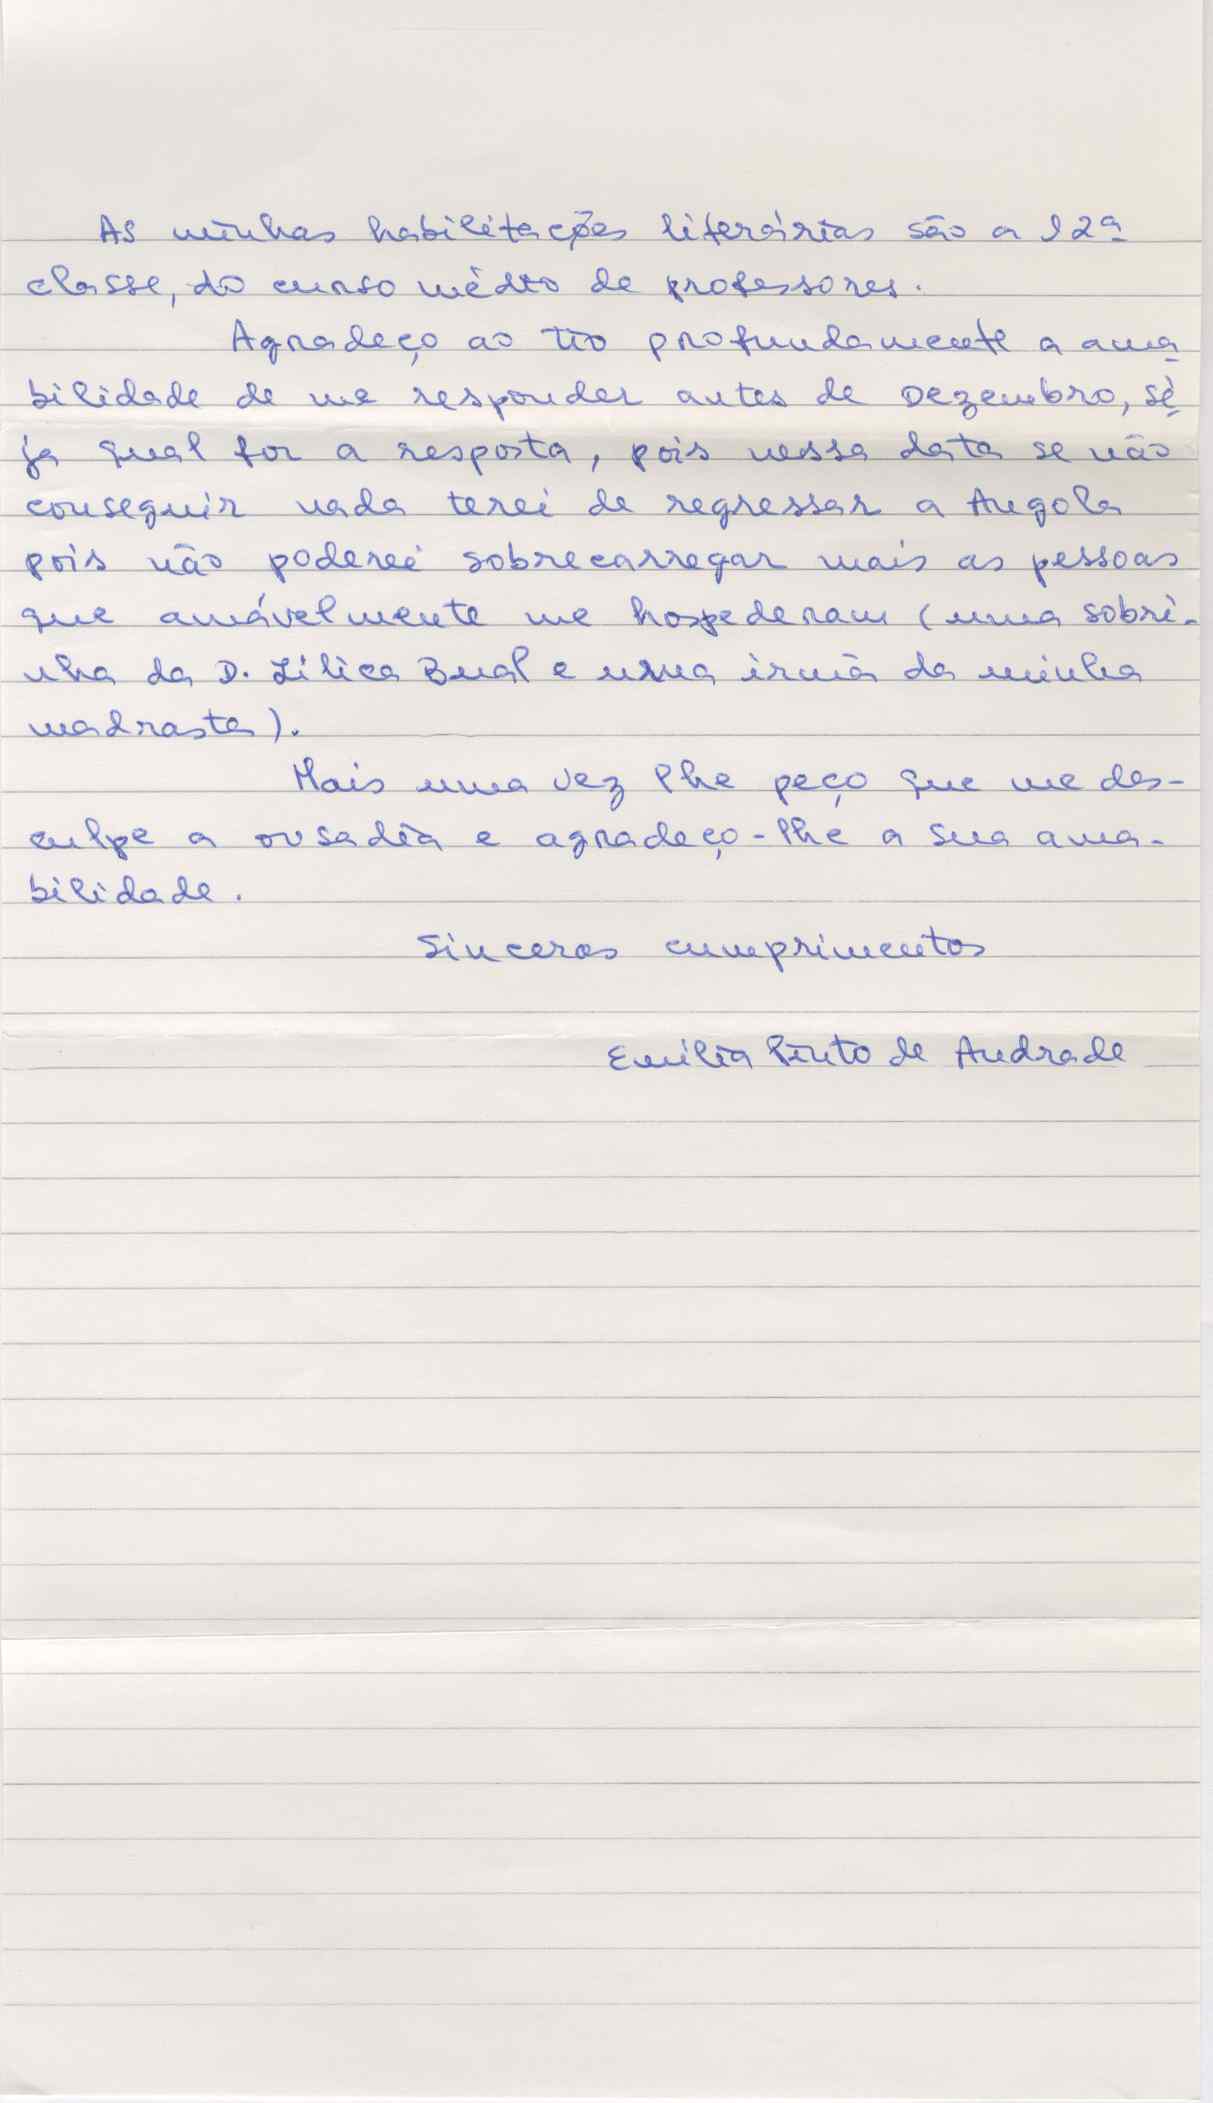 As minhas habilitações literárias são a 12ª
classe, do curso médio de professores.
Agradeço ao tio profundamente a ama
bilidade de me responder antes de Dezembro, se
ja qual for a resposta, pois nessa data se não
conseguir nada terei de regressar a Angola
pois não poderei sobrecarregar mais as pessoas
que amávelmente me hospederam (uma sobri-
nha da D. Lilica Bual e uma irmã da minha
madrasta).
Mais uma vez lhe peço que me des-
culpe a ousadia e agradeço-lhe a sua ama-
bilidade.
Sinceros cumprimentos
Emília Pinto de Andrade